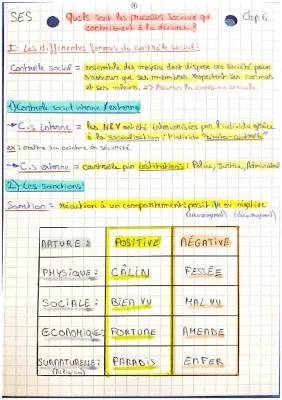 ①
SES
Quels sont les processus sociaux qui
contribuent à la déviance ?
Chp. 6
I- Les différentes formes du contrôle social :
Contrôle social = ensemble des moyens dont dispose une société pour
s'assurer que ses membres respectent ses normes
et ses valeurs. => Assurer la cohésion sociale
1) Contrôle social interne / externe
C.s interne = les N&V ont été intériorisées par l'individu grâce
à la socialisation : l'individu
ex : mettre sa ceinture de sécurité
C.s externe = contrôle par institutions : Police, Justice,
2) Les sanctions :
Sanction = réaction à un comportement : positive ou négative
(encouragement) (découragement)
NATURE : POSITIVE NÉGATIVE
PHYSIQUE : CÂLIN FESSÉE
SOCIALE : BIEN VU MAL VU
ECONOMIQUE : FORTUNE AMENDE
SURNATURELLE : PARADIS ENFER
(Religion)